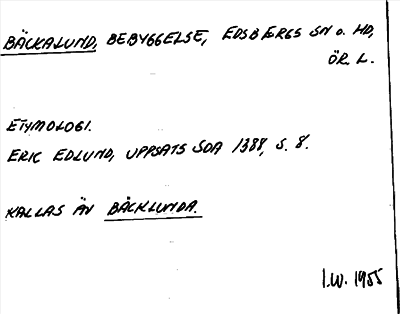 BÄCKALUND, BEBYGGELSE, EDSBERGS SN o. HD,
ÖR. L.
ETYMOLOGI.
ERIC EDLUND, UPPSATS SOA 1388, S. 8.
KALLAS ÄV BÄCKLUNDA.
I.W. 1955